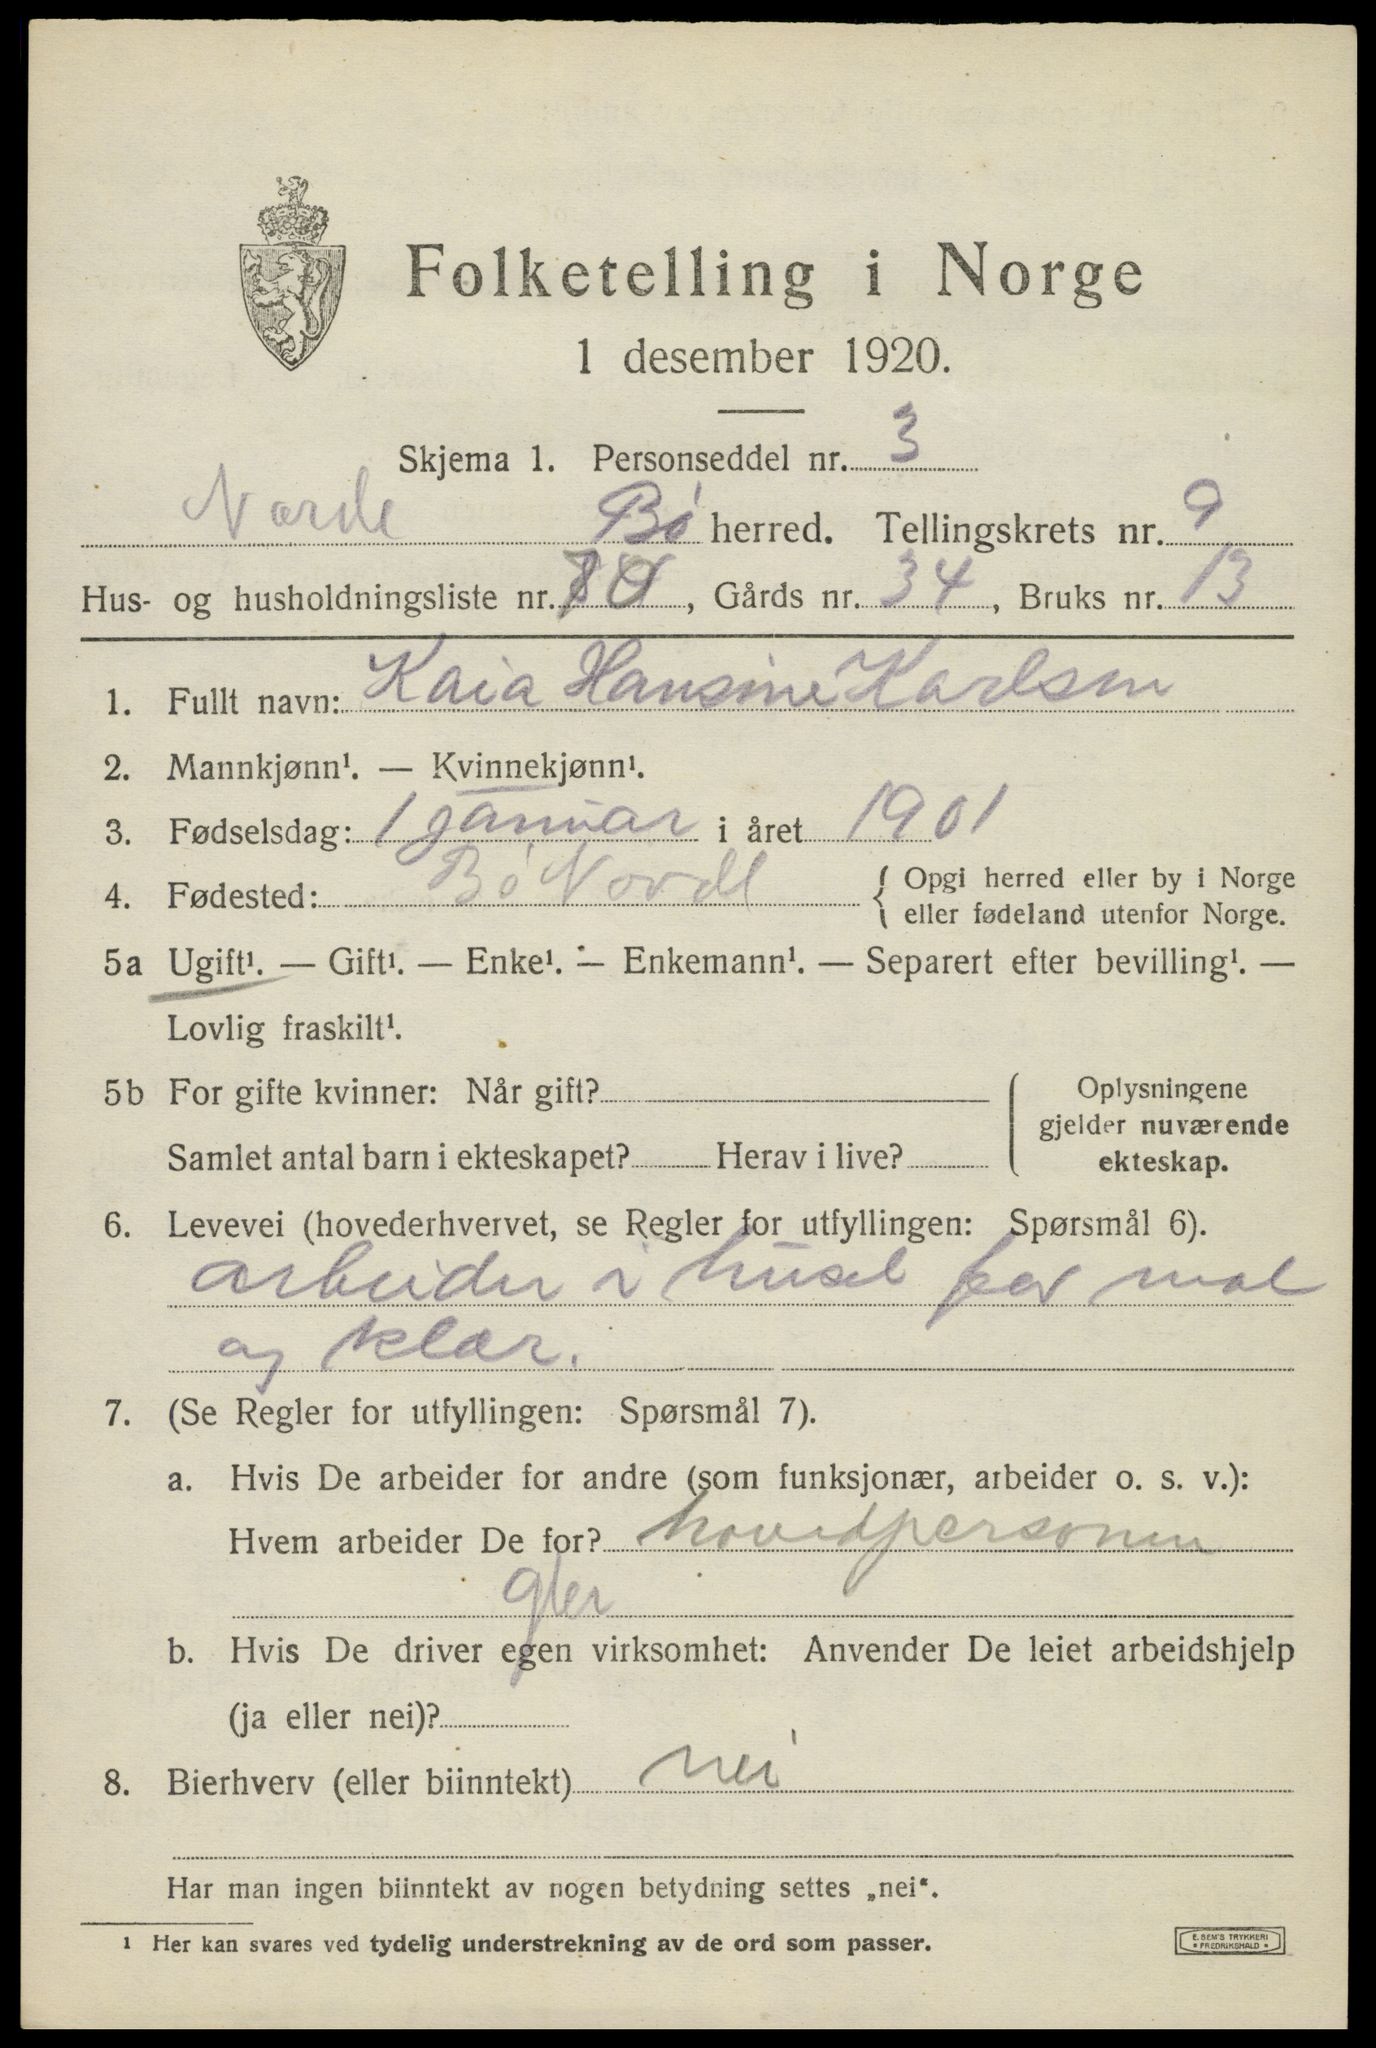 Folketelling i Norge
1 desember 1920.
Skjema 1. Personseddel nr. 3
Norde Bø herred. Tellingskrets nr. 9
Hus- og husholdningsliste nr. , Gårds nr. 34, Bruks nr. 13
1. Fullt navn: Kaia Hansine Karlsen
2. Mannkjønn¹. — Kvinnekjønn¹.
3. Fødselsdag: 1 januar i året 1901
4. Fødested: Bø Nordl { Opgi herred eller by i Norge
eller fødeland utenfor Norge.
5a Ugift¹. — Gift¹. — Enke¹. — Enkemann¹. — Separert efter bevilling¹. —
Lovlig fraskilt¹.
5b For gifte kvinner: Når gift? Oplysningene
gjelder nuværende
Samlet antal barn i ekteskapet? Herav i live? ekteskap.
6. Levevei (hovederhvervet, se Regler for utfyllingen: Spørsmål 6).
arbeider i huset for mat
og klær.
7. (Se Regler for utfyllingen: Spørsmål 7).
a. Hvis De arbeider for andre (som funksjonær, arbeider o. s. v.):
Hvem arbeider De for? hovedpersonen
b. Hvis De driver egen virksomhet: Anvender De leiet arbeidshjelp
(ja eller nei)?
8. Bierhverv (eller biinntekt) nei
Har man ingen biinntekt av nogen betydning settes „nei“.
¹ Her kan svares ved tydelig understrekning av de ord som passer.
E. SEM'S TRYKKERI
• FREDRIKSHALD •